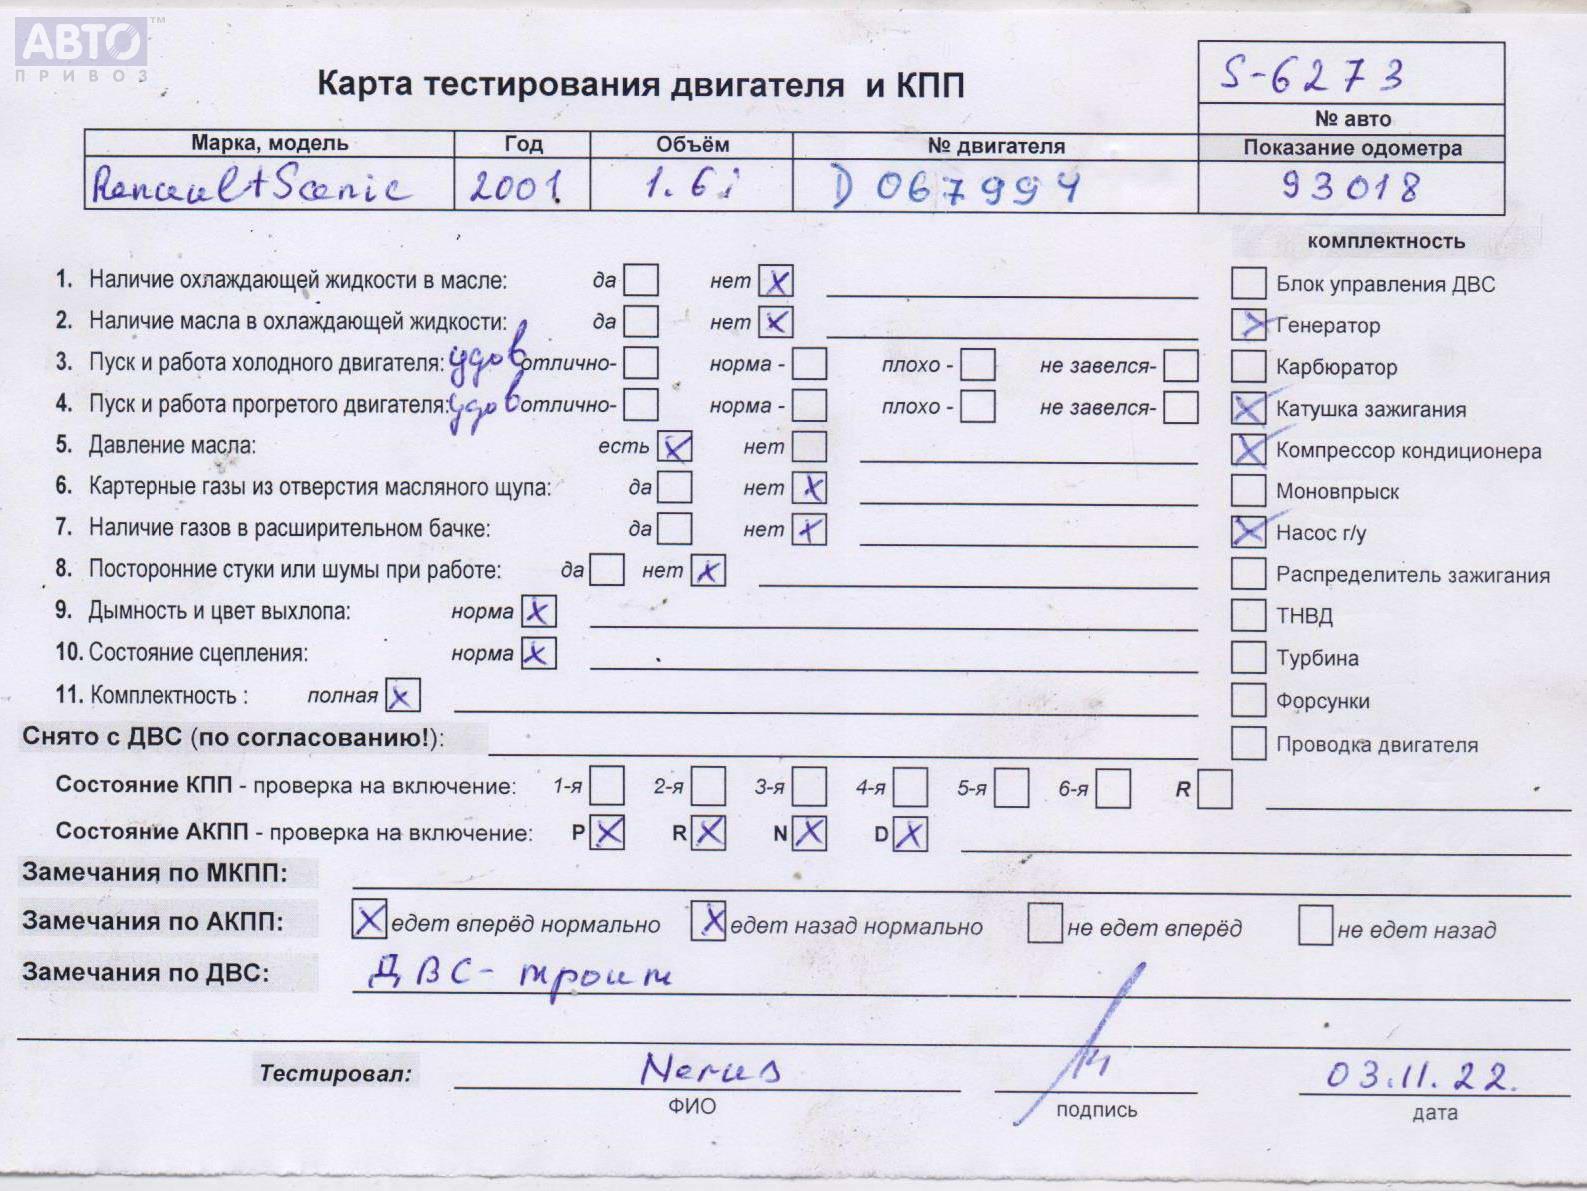 АВТО™
ПРИВОЗ
Карта тестирования двигателя и КПП
S-6273
№ авто
Марка, модель Год Объём № двигателя Показание одометра
Renault Scenic 2001 1.6i D067994 93018
комплектность
1. Наличие охлаждающей жидкости в масле: да нет X Блок управления ДВС
2. Наличие масла в охлаждающей жидкости: да нет X X Генератор
3. Пуск и работа холодного двигателя: удов отлично- норма - плохо - не завелся- Карбюратор
4. Пуск и работа прогретого двигателя: удов отлично- норма - плохо - не завелся- X Катушка зажигания
5. Давление масла: есть X нет X Компрессор кондиционера
6. Картерные газы из отверстия масляного щупа: да нет X Моновпрыск
7. Наличие газов в расширительном бачке: да нет X X Насос г/у
8. Посторонние стуки или шумы при работе: да нет X Распределитель зажигания
9. Дымность и цвет выхлопа: норма X ТНВД
10. Состояние сцепления: норма X Турбина
11. Комплектность : полная X Форсунки
Снято с ДВС (по согласованию!): Проводка двигателя
Состояние КПП - проверка на включение: 1-я 2-я 3-я 4-я 5-я 6-я R
Состояние АКПП - проверка на включение: P X R X N X D X
Замечания по МКПП:
Замечания по АКПП: X едет вперёд нормально X едет назад нормально не едет вперёд не едет назад
Замечания по ДВС: ДВС- троит
Тестировал: 03.11.22.
ФИО подпись дата